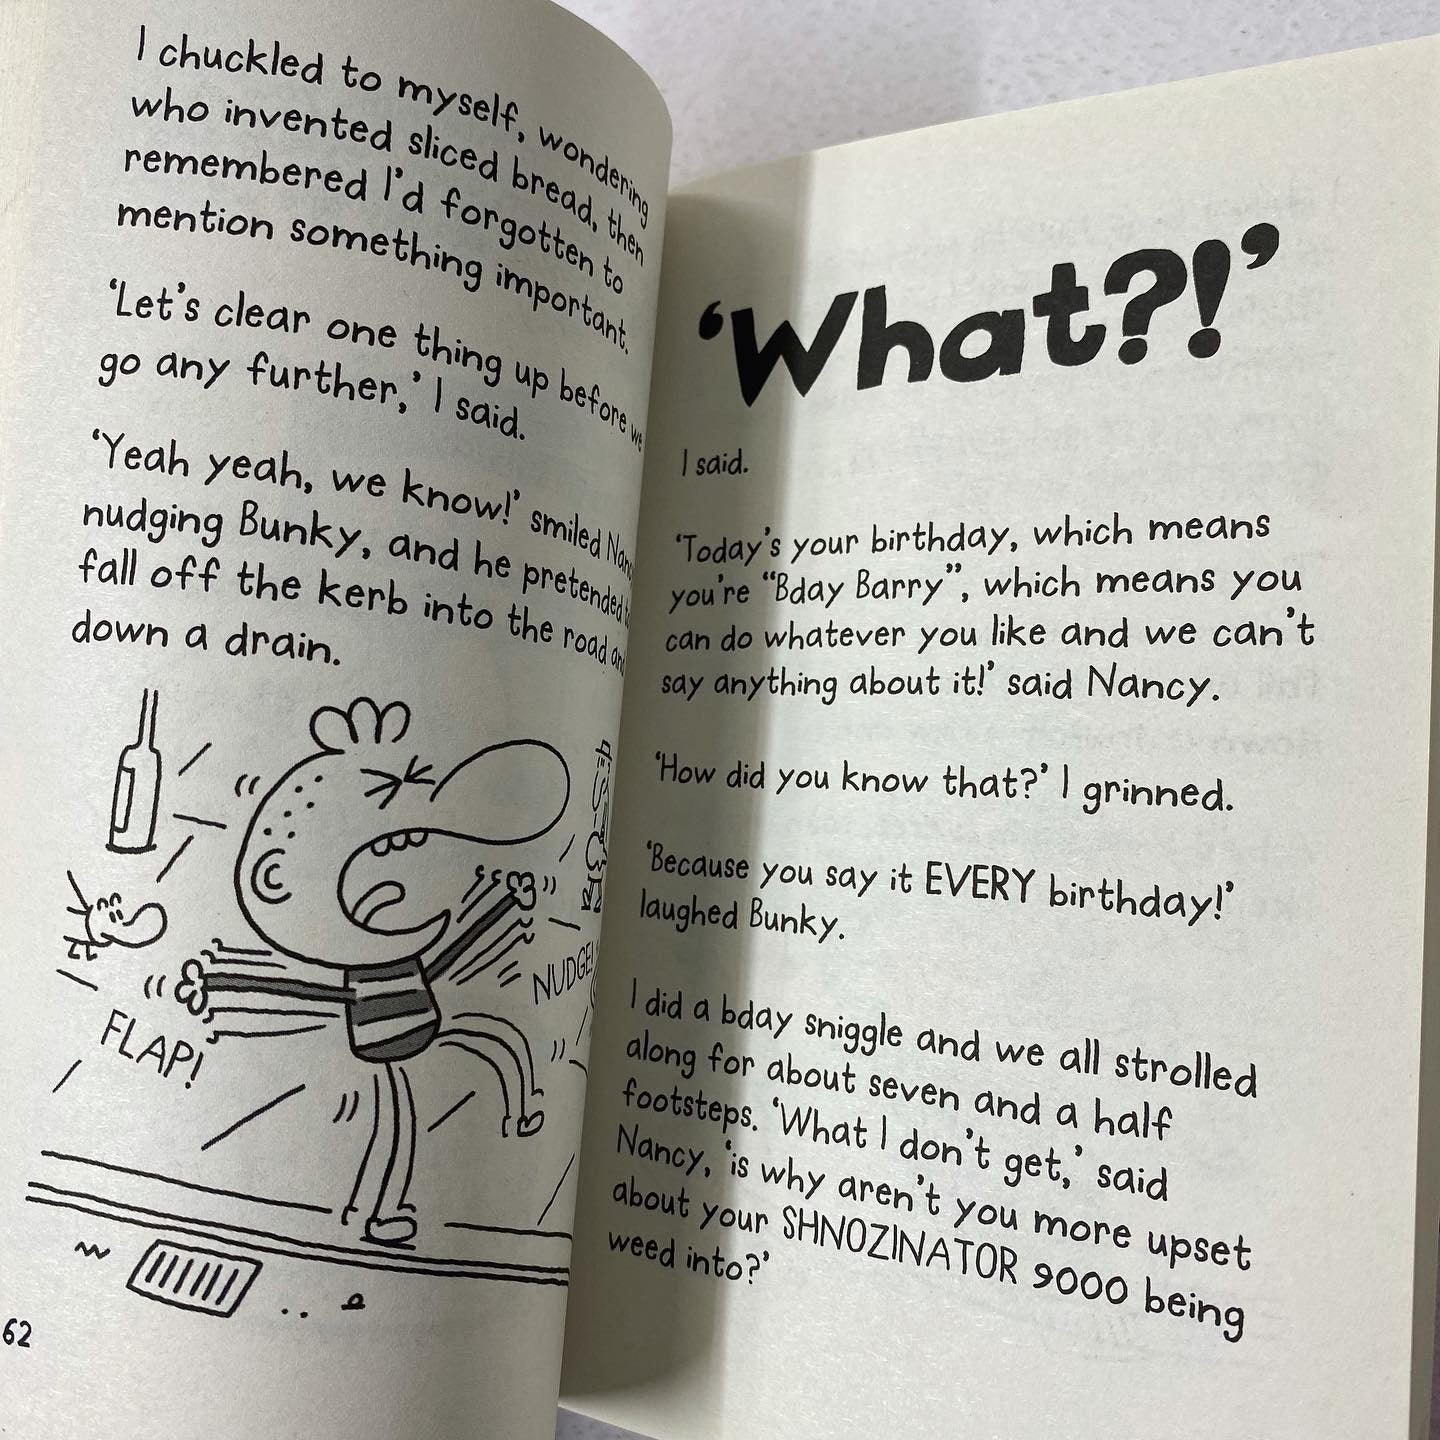 I chuckled to myself, wondering
who invented sliced bread, then
remembered I'd forgotten to
mention something important.
'Let's clear one thing up before we
go any further,' I said.
'Yeah yeah, we know!' smiled
nudging Bunky, and he pretended
fall off the kerb into the road
down a drain.
NUDGE!
FLAP!
62
'What?!'
I said.
'Today's your birthday, which means
you're "Bday Barry", which means you
can do whatever you like and we can't
say anything about it!' said Nancy.
'How did you know that?' I grinned.
'Because you say it EVERY birthday!'
laughed Bunky.
I did a bday sniggle and we all strolled
along for about seven and a half
footsteps. 'What I don't get,' said
Nancy, 'is why aren't you more upset
about your SHNOZINATOR 9000 being
weed into?'